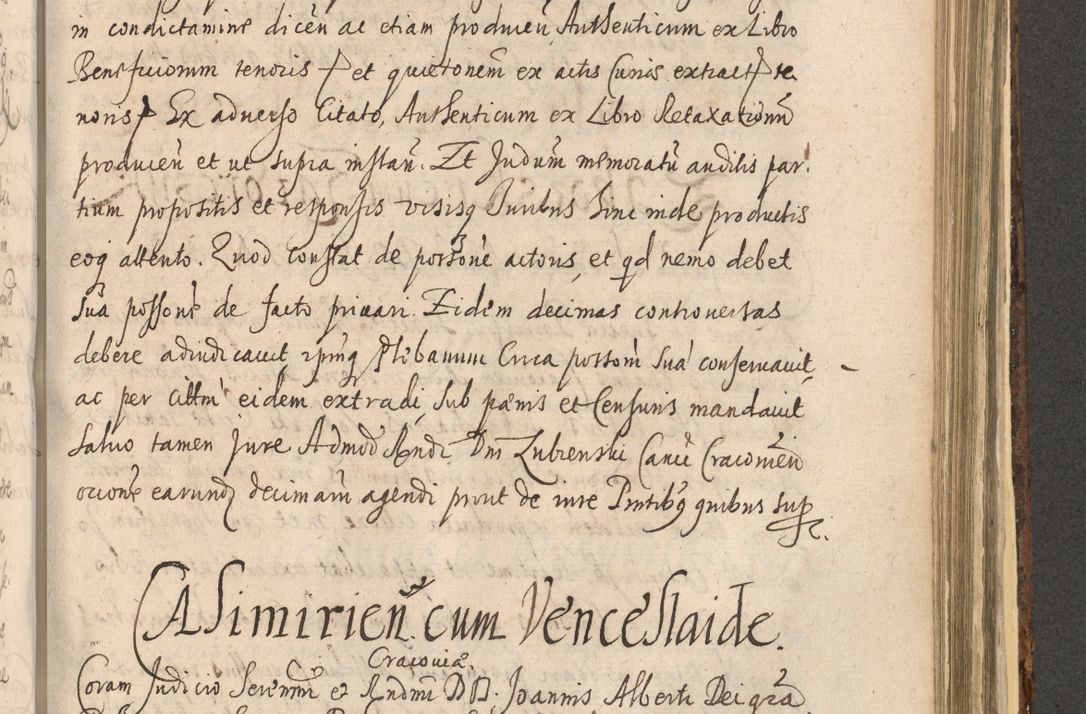 in condictamine dicen̄ ac etiam producen̄ Authenticum ex Libro
Beneficiorum tenoris et quietonem̄ ex actis Curiæ extract te
noris Ex aduerso Citato, Authenticum ex Libro Retaxationū
producen̄ et ut supra instan̄. Et Judiūm memoratū auditis par
tium propositis et responsis visisq Juribus hinc inde productis
eoq attento. Quod constat de possone actoris et qd nemo debet
suā possone de facto priuari. Eidem decimas controuersas
debere adiudicauit ipmq Plebanum Circa posson̄ suā conseruauit
ac per cittm̄ eidem extradi, sub pænis et Censuris mandauit
saluo tamen Jure Admod Rndi Dni Zubrenski Canci Cracouien̄
ocione earund decimarū agendi prout de iure Pntibq quibus sup
CAsimirien̄. cum Venceslaide.
Cracouiæ.
Coram Judicio Serenmi et Rndmi DD. Joannis Alberti Dei grā